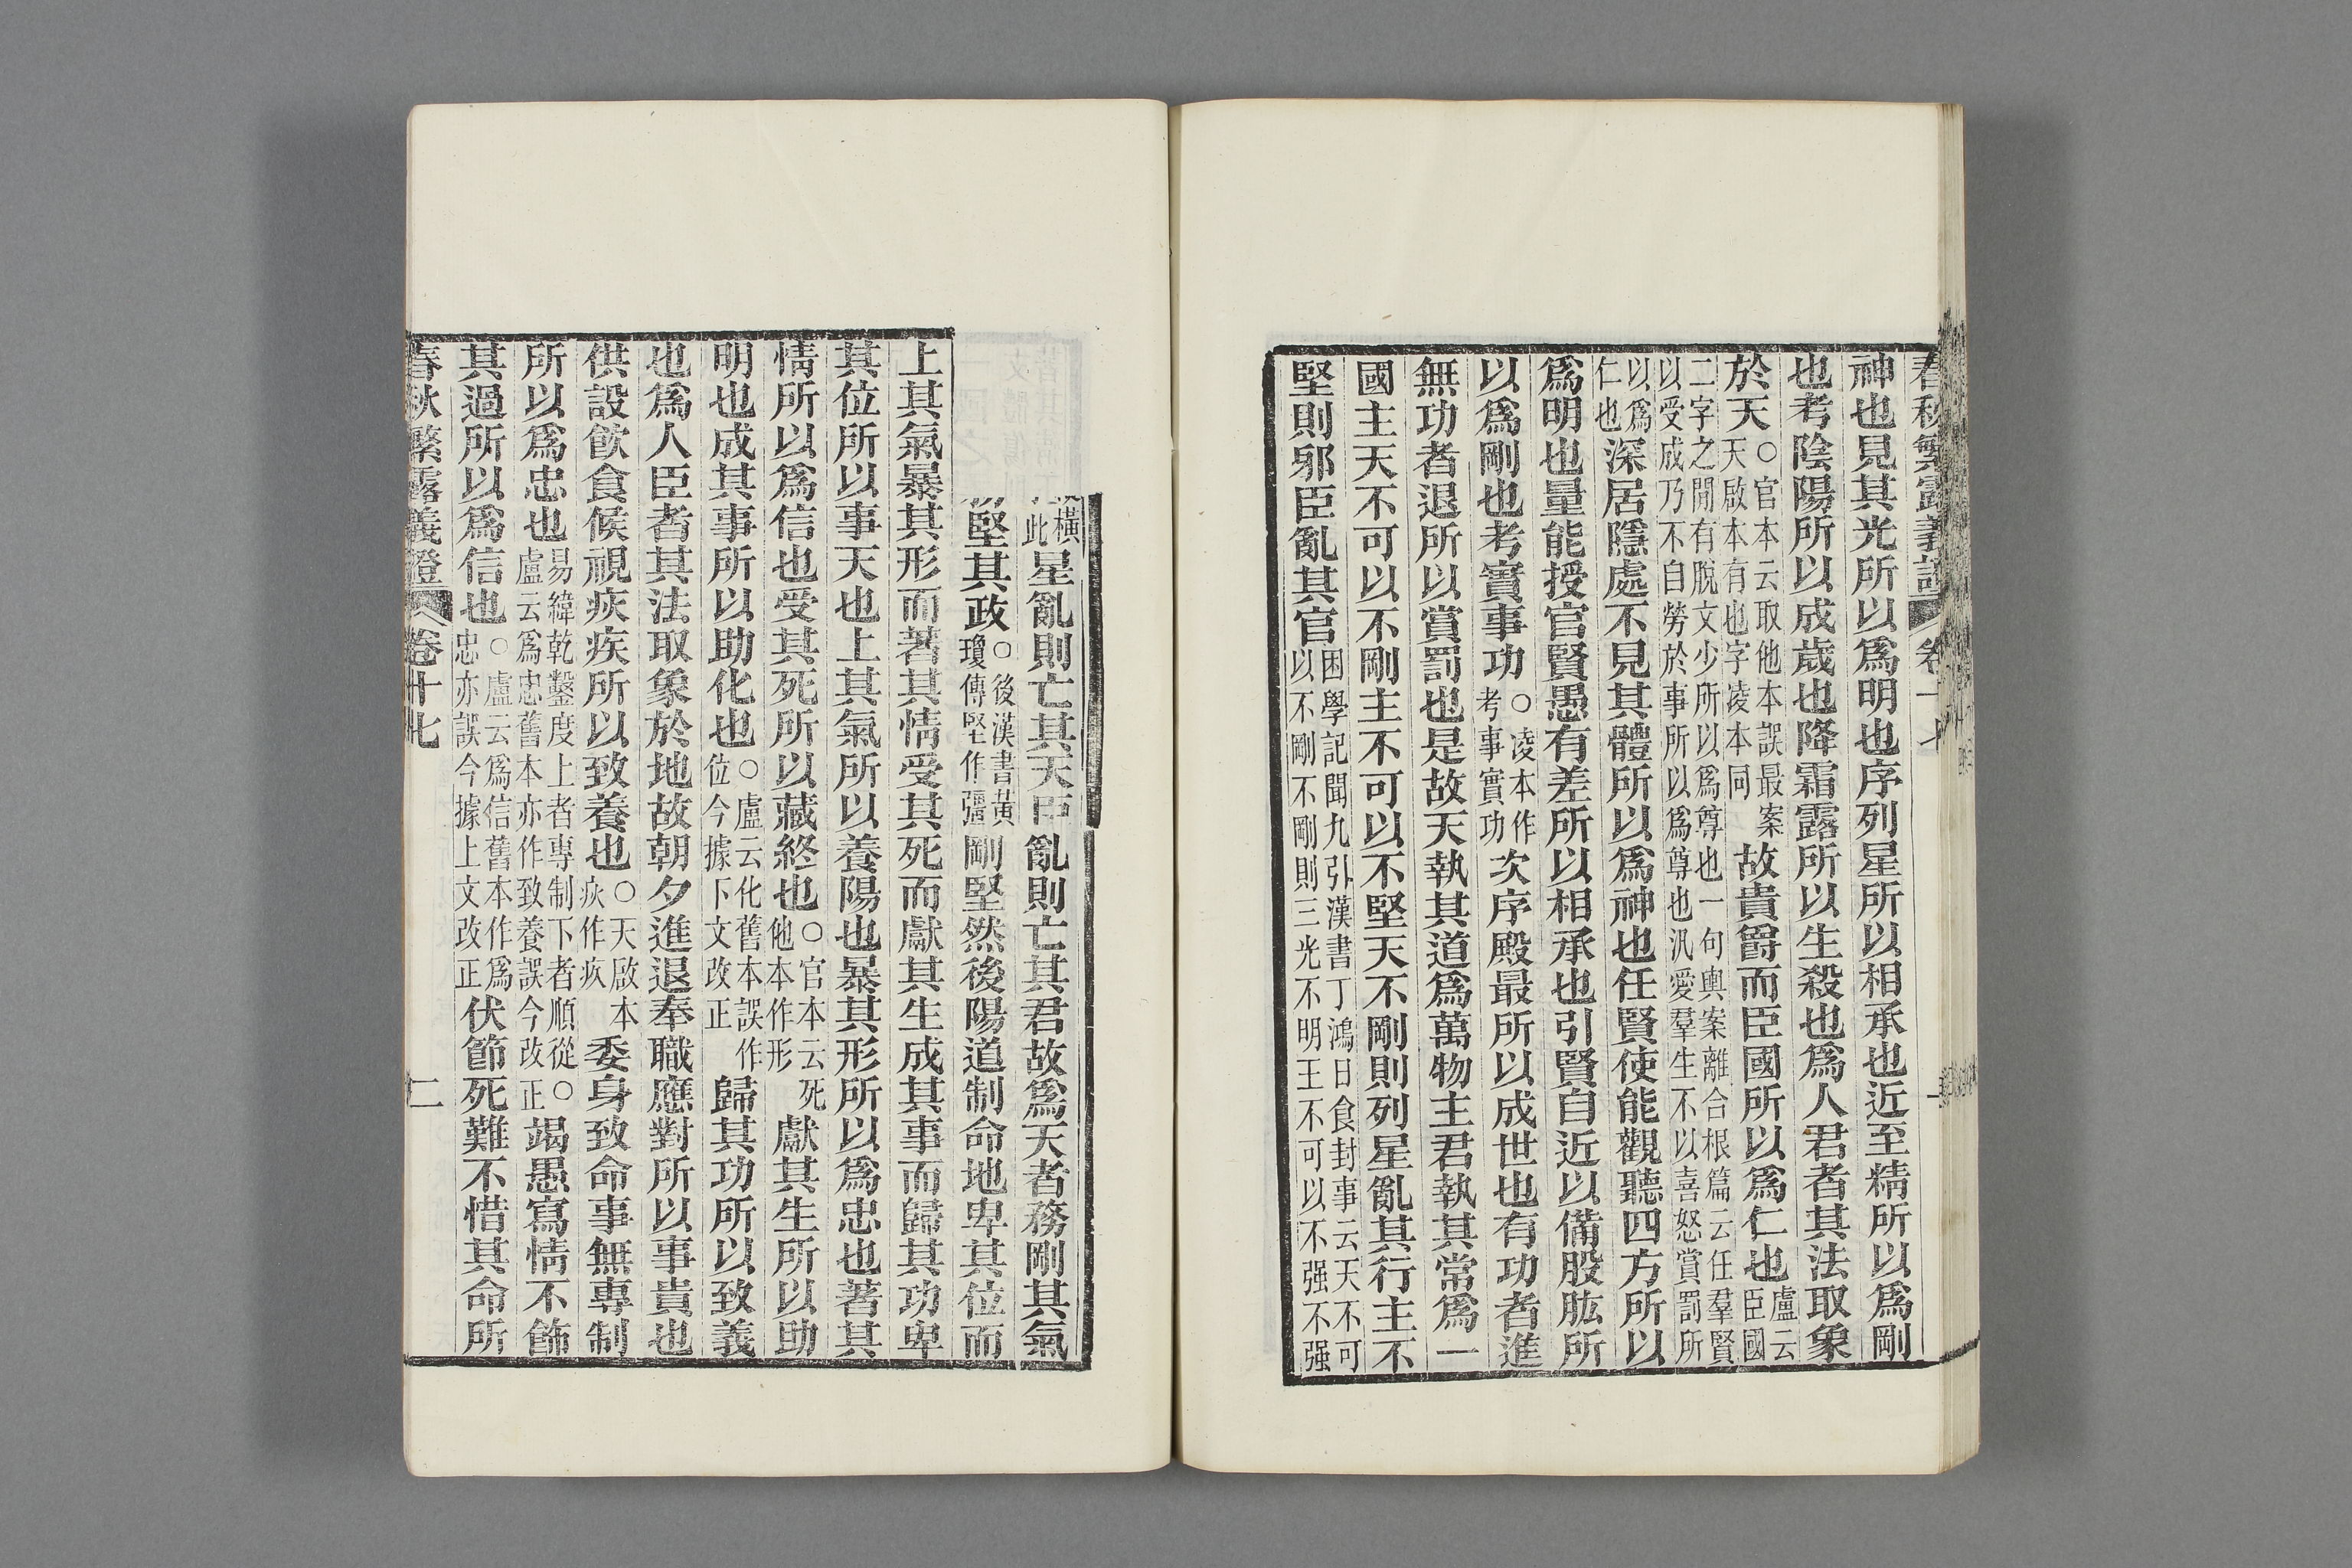 春秋繁露義證 卷十七
神也見其光所以爲明也序列星所以相承也近至精所以爲剛
也考陰陽所以成歲也降霜露所以生殺也爲人君者其法取象
於天○官本云取他本誤最案天啟本有也字凌本同故貴爵而臣國所以爲仁也盧云臣國
二字之閒有脫文少所以爲尊也一句輿案離合根篇云任羣賢所
以受成乃不自勞於事所以爲尊也汎愛羣生不以喜怒賞罰所
以爲仁也深居隱處不見其體所以爲神也任賢使能觀聽四方所以
爲明也量能授官賢愚有差所以相承也引賢自近以備股肱所
以爲剛也考實事功○凌本作考事實功次序殿最所以成世也有功者進
無功者退所以賞罰也是故天執其道爲萬物主君執其常爲一
國主天不可以不剛主不可以不堅天不剛則列星亂其行主不
堅則邪臣亂其官困學記聞九引漢書丁鴻日食封事云天不可以不剛不剛則三光不明王不可以不强不强
橫此星亂則亡其天臣亂則亡其君故爲天者務剛其氣
堅其政○後漢書黃瓊傳堅作彊剛堅然後陽道制命地卑其位而
上其氣暴其形而著其情受其死而獻其生成其事而歸其功卑
其位所以事天也上其氣所以養陽也暴其形所以爲忠也著其
情所以爲信也受其死所以藏終也○官本云死他本作形獻其生所以助
明也成其事所以助化也○盧云化舊本誤作位今據下文改正歸其功所以致義
也爲人臣者其法取象於地故朝夕進退奉職應對所以事貴也
供設飲食候視疢疾所以致養也○天啟本疢作疾委身致命事無專制
所以爲忠也易緯乾鑿度上者專制下者順從○盧云爲忠舊本亦作致養誤今改正竭愚寫情不飾
其過所以爲信也○盧云爲信舊本作爲忠亦誤今據上文改正伏節死難不惜其命所
春秋繁露義證 卷十七 二